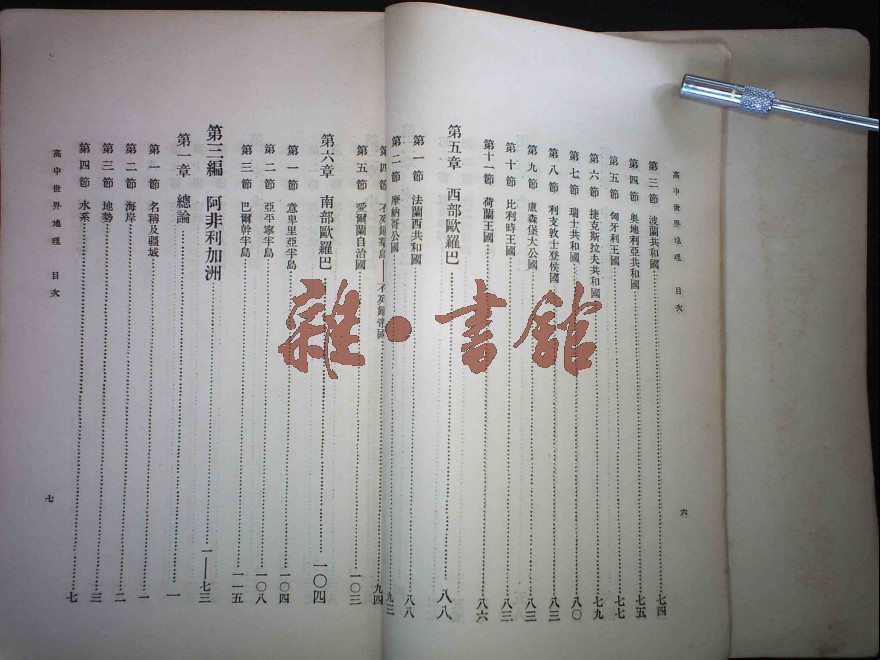 高中世界地理 目次
第三節 波蘭共和國 七四
第四節 奧地利亞共和國 七五
第五節 匈牙利王國 七七
第六節 捷克斯拉夫共和國 七九
第七節 瑞士共和國 八〇
第八節 利支敦士登侯國 八三
第九節 盧森堡大公國 八三
第十節 比利時王國 八三
第十一節 荷蘭王國 八六
第五章 西部歐羅巴 八八
第一節 法蘭西共和國 八八
第二節 摩納哥公國 九三
六
第四節 不列顛羣島——不列顛帝國 九四
第五節 愛爾蘭自治國 一〇三
第六章 南部歐羅巴 一〇四
第一節 意卑里亞半島 一〇四
第二節 亞平寧半島 一〇八
第三節 巴爾幹半島 一一五
第三編 阿非利加洲 一——七三
第一章 總論 一
第一節 名稱及疆域 一
第二節 海岸 二
第三節 地勢 三
第四節 水系 七
高中世界地理 目次
七
雜·書館